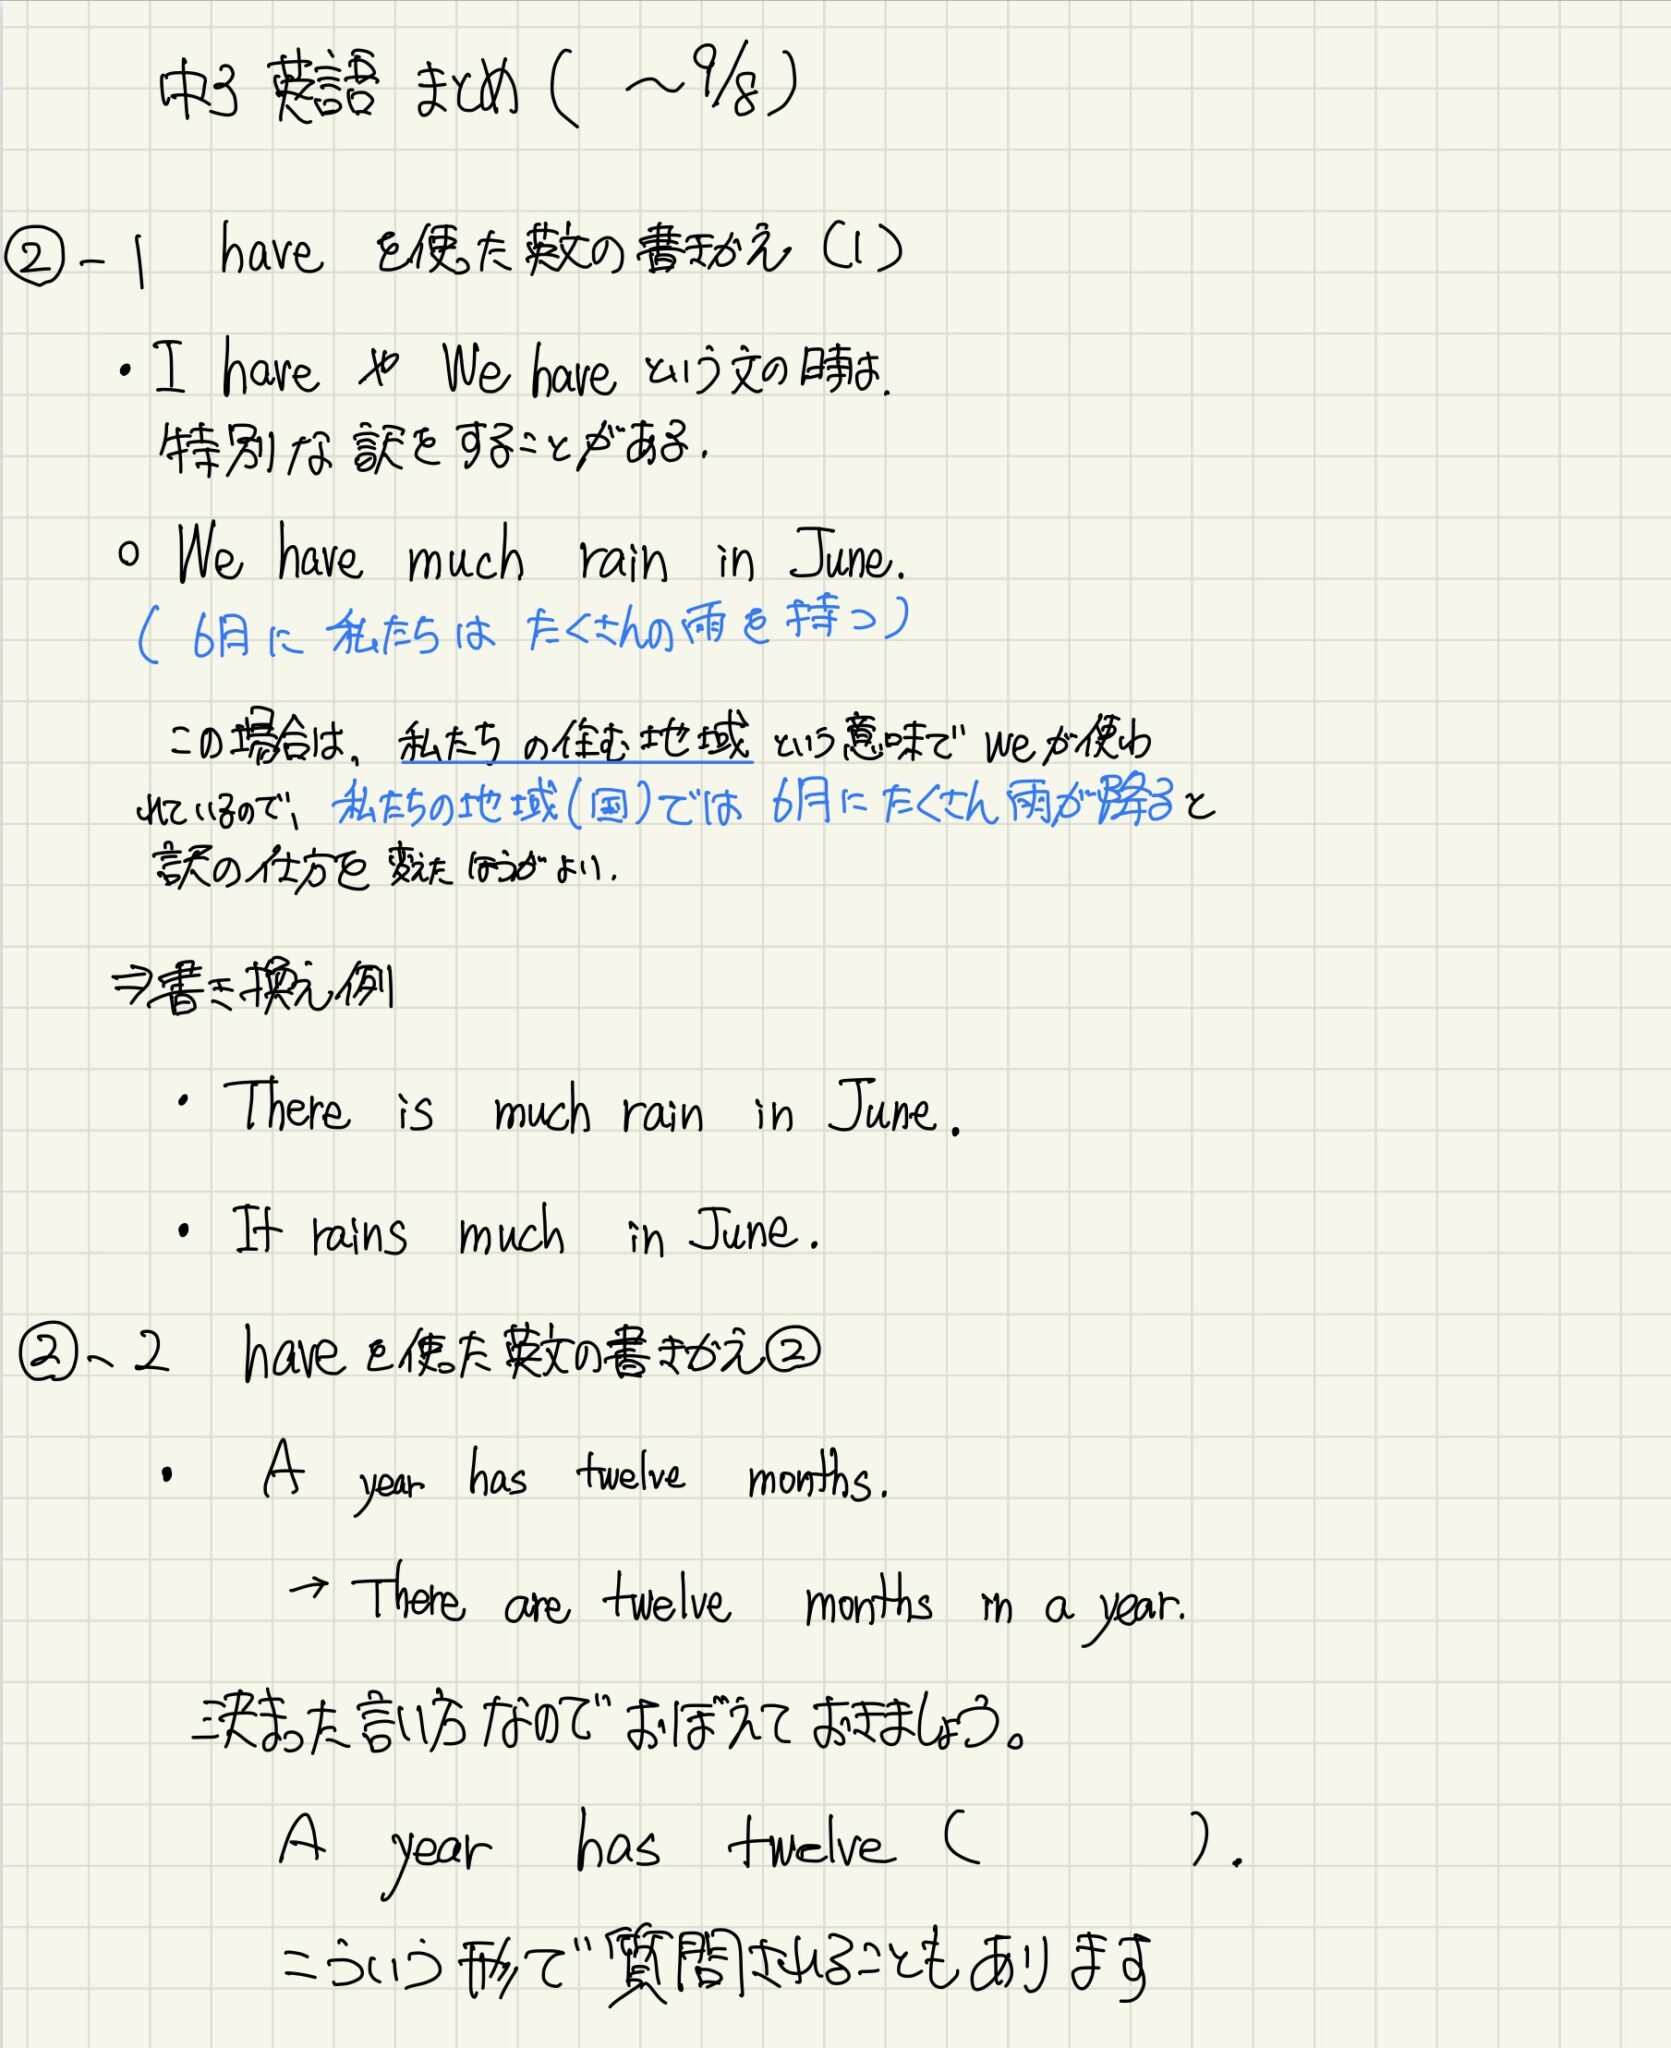 中3 英語 まとめ( ～9/8)
②-1 have を使った英文の書きかえ (1)
・I have や We have という文の時は、
特別な訳をすることがある.
○ We have much rain in June.
( 6月に 私たちは たくさんの雨を持つ)
この場合は、私たちの住む地域 という意味で weが使わ
れているので、私たちの地域(国)では 6月に たくさん雨が降ると
訳の仕方を変えたほうがよい.
⇒書き換え例
・There is much rain in June.
・It rains much in June.
②-2 haveを使った英文の書きかえ②
・A year has twelve months.
→ There are twelve months in a year.
決まった言い方なのでおぼえておきましょう。
A year has twelve ( ).
こういう形で質問されることもあります